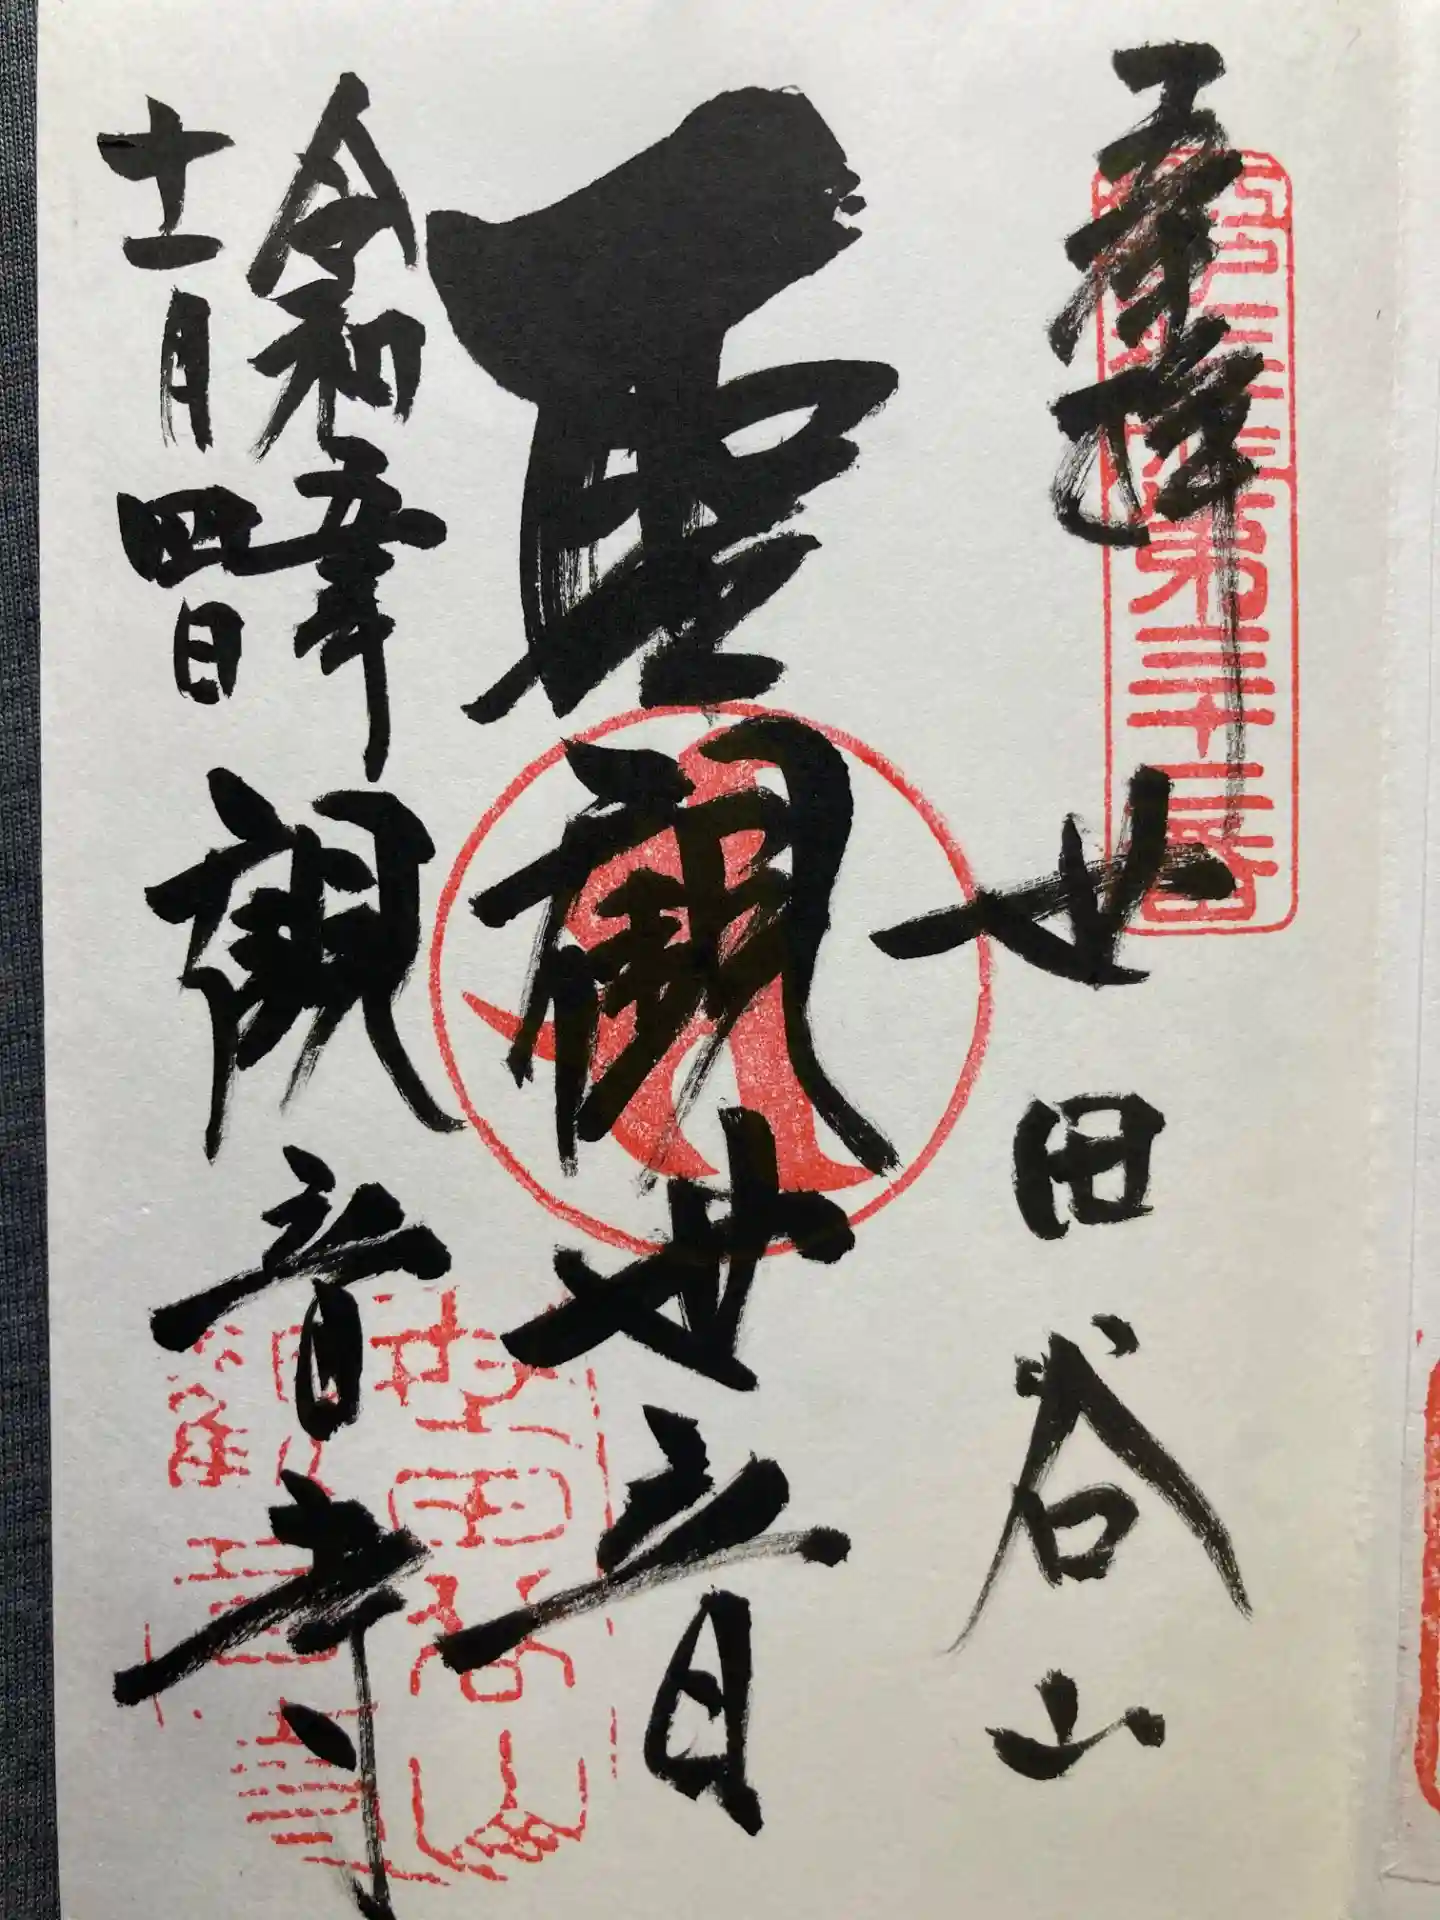 奉拝
第三十二番
世田谷山
聖観世音
令和五年
十一月四日
観音寺